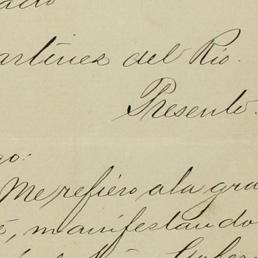 artinez del Rio.
Presente.
go:
Me refiero a la gra
manifestando